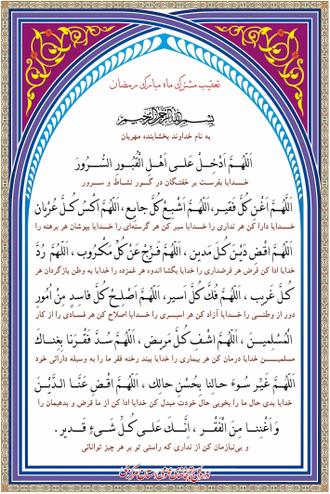 تعقیب مشترک ماه مبارک رمضان
بسم الله الرحمن الرحیم
به نام خداوند بخشاینده مهربان
اَللّهُمَّ اَدْخِلْ عَلى اَهْلِ الْقُبُورِ السُّرُورَ
خدایا بفرست بر خفتگان در گور نشاط و سرور
اَللّهُمَّ اَغْنِ كُلَّ فَقيرٍ، اَللّهُمَّ اَشْبِعْ كُلَّ جايِعٍ، اَللّهُمَّ اكْسُ كُلَّ عُرْيانٍ
خدایا دارا کن هر نداری را خدایا سیر کن هر گرسنه‌ای را خدایا بپوشان هر برهنه را
اَللّهُمَّ اقْضِ دَيْنَ كُلِّ مَدينٍ، اَللّهُمَّ فَرِّجْ عَنْ كُلِّ مَكْرُوبٍ، اَللّهُمَّ رُدَّ
خدایا ادا کن قرض هر قرضداری را خدایا بگشا اندوه هر غمزده را خدایا به وطن بازگردان هر
كُلَّ غَريبٍ، اَللّهُمَّ فُكَّ كُلَّ اَسيرٍ، اَللّهُمَّ اَصْلِحْ كُلَّ فاسِدٍ مِنْ اُمُورِ
دور از وطنی را خدایا آزاد کن هر اسیری را خدایا اصلاح کن هر فسادی را از کار
الْمُسْلِمينَ، اَللّهُمَّ اشْفِ كُلَّ مَريضٍ، اَللّهُمَّ سُدَّ فَقْرَنا بِغِناكَ
مسلمین خدایا درمان کن هر بیماری را خدایا ببند رخنه فقر ما را به وسیله دارائی خود
اَللّهُمَّ غَيِّرْ سُوءَ حالِنا بِحُسْنِ حالِكَ، اَللّهُمَّ اقْضِ عَنَّا الدَّيْنَ
خدایا بدی حال ما را بخوبی حال خودت مبدل کن خدایا ادا کن از ما قرض و بدهیمان را
وَ اَغْنِنا مِنَ الْفَقْرِ، اِنَّكَ عَلى كُلِّ شَىْءٍ قَديرٌ.
و بی‌نیازمان کن از نداری که راستی تو بر هر چیز توانائی